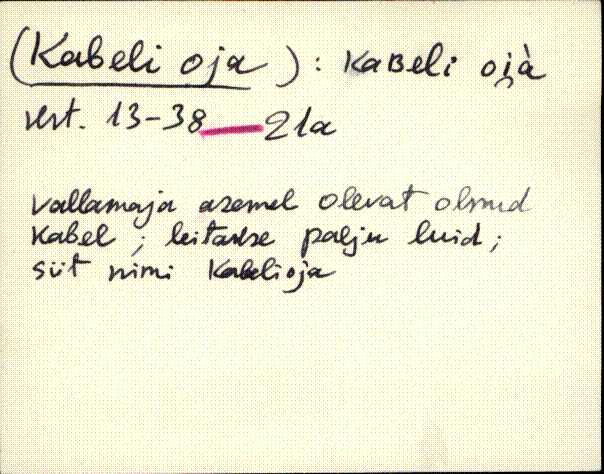 (Kabeli oja): KaBeli oi̯à
vest. 13-38 — 21a
vallamaja asemel olevat olnud
Kabel; leitakse palju luid;
siit nimi Kabelioja